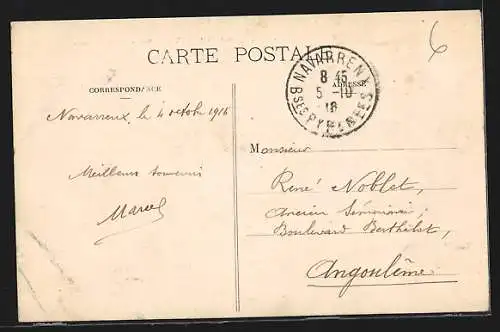 CARTE POSTALE
CORRESPONDANCE
ADRESSE
NAVARRENX
8 45
5 -10
16
BSES PYRÉNÉES
6
Navarrenx, le 4 octob 1916
Meilleurs souvenirs
Marcel
Monsieur
René Noblet,
Ancien Séminaire,
Boulevard Berthelot,
Angoulême